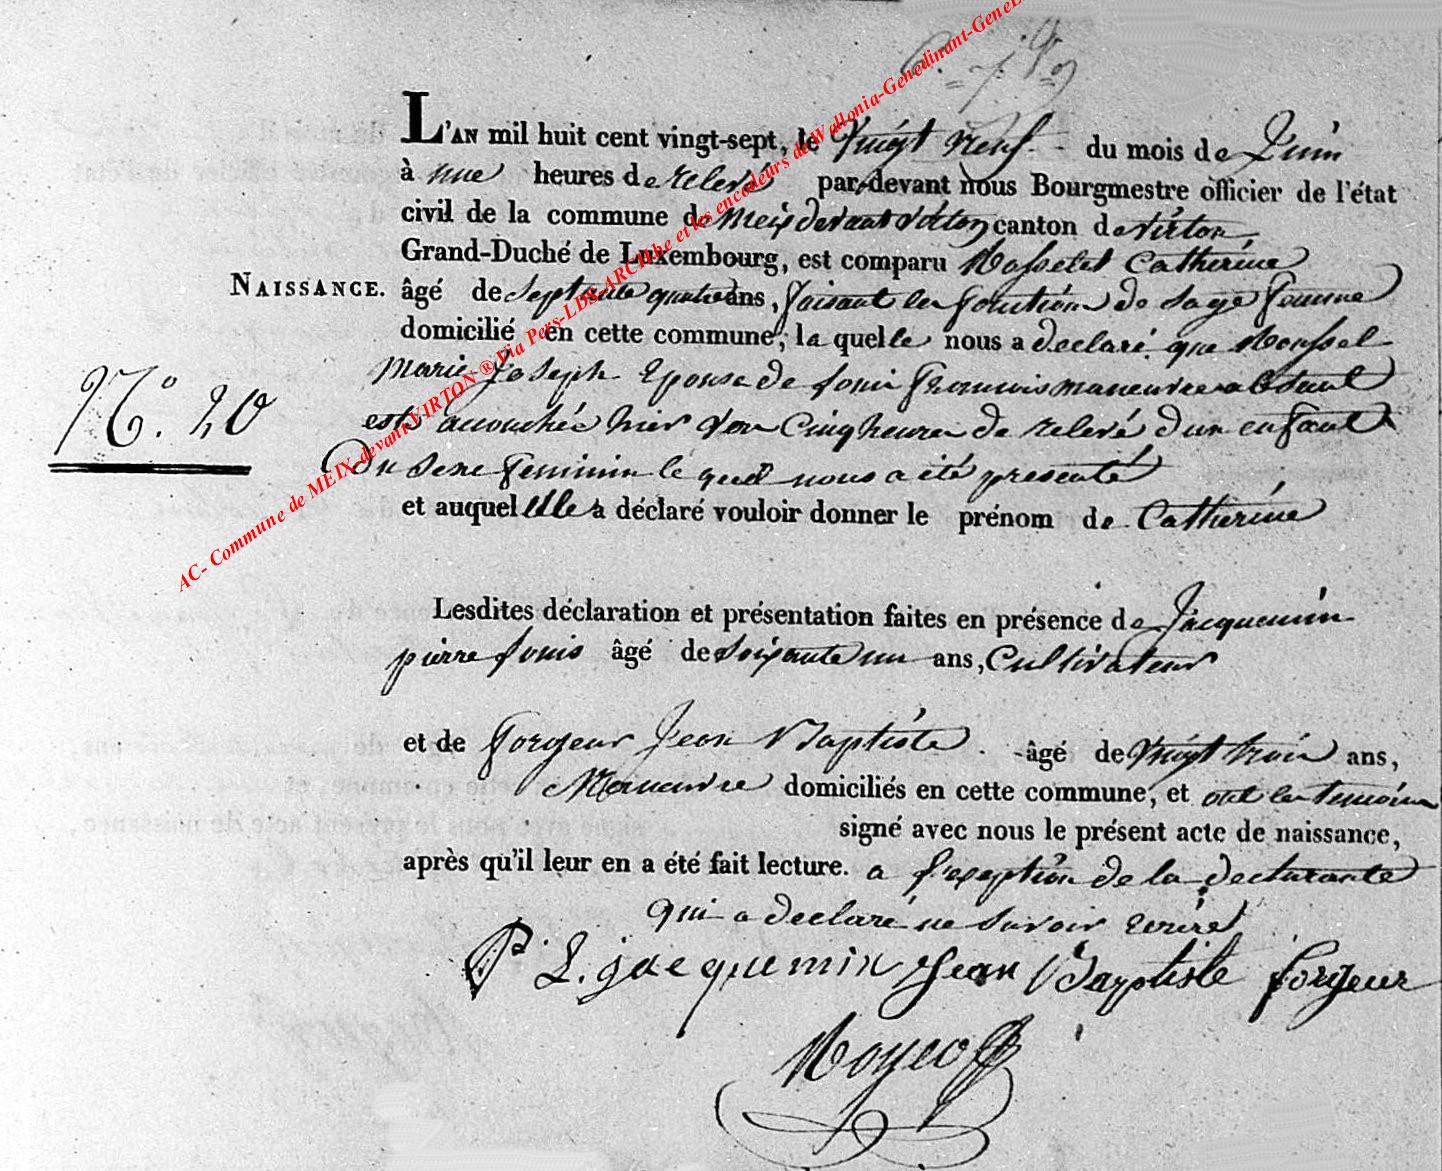 L'AN mil huit cent vingt-sept, le Vingt neuf du mois de Juin
à une heures de relevé par devant nous Bourgmestre officier de l'état
civil de la commune de Meix devant Virton canton de Virton
Grand-Duché de Luxembourg, est comparu Catherine
NAISSANCE. âgé de septante quatre ans, faisant les fonction de sage femme
domicilié en cette commune, la quelle nous a declaré que
Marie Joseph Epouse de Louis Francois manœuvre absent
N.º 20 est accouchée hier vers Cinq heures de relevé d'un enfant
Du sexe feminin le quel nous a été presenté
et auquel elle a déclaré vouloir donner le prénom de Catherine
Lesdites déclaration et présentation faites en présence de Jacquemin
pierre Louis âgé de soixante un ans, Cultivateur
et de Forgeur Jean Baptiste âgé de vingt trois ans,
Manœuvre domiciliés en cette commune, et ont les temoins
signé avec nous le présent acte de naissance,
après qu'il leur en a été fait lecture. a l'exeption de la declarante
qui a declaré ne savoir ecrire
P. L. jacquemin Jean Baptiste forgeur
AC- Commune de MEIX devant VIRTON ® Via Pers-LDS-ARCHbe et les encodeurs de Wallonia-Genedinant-GeneL